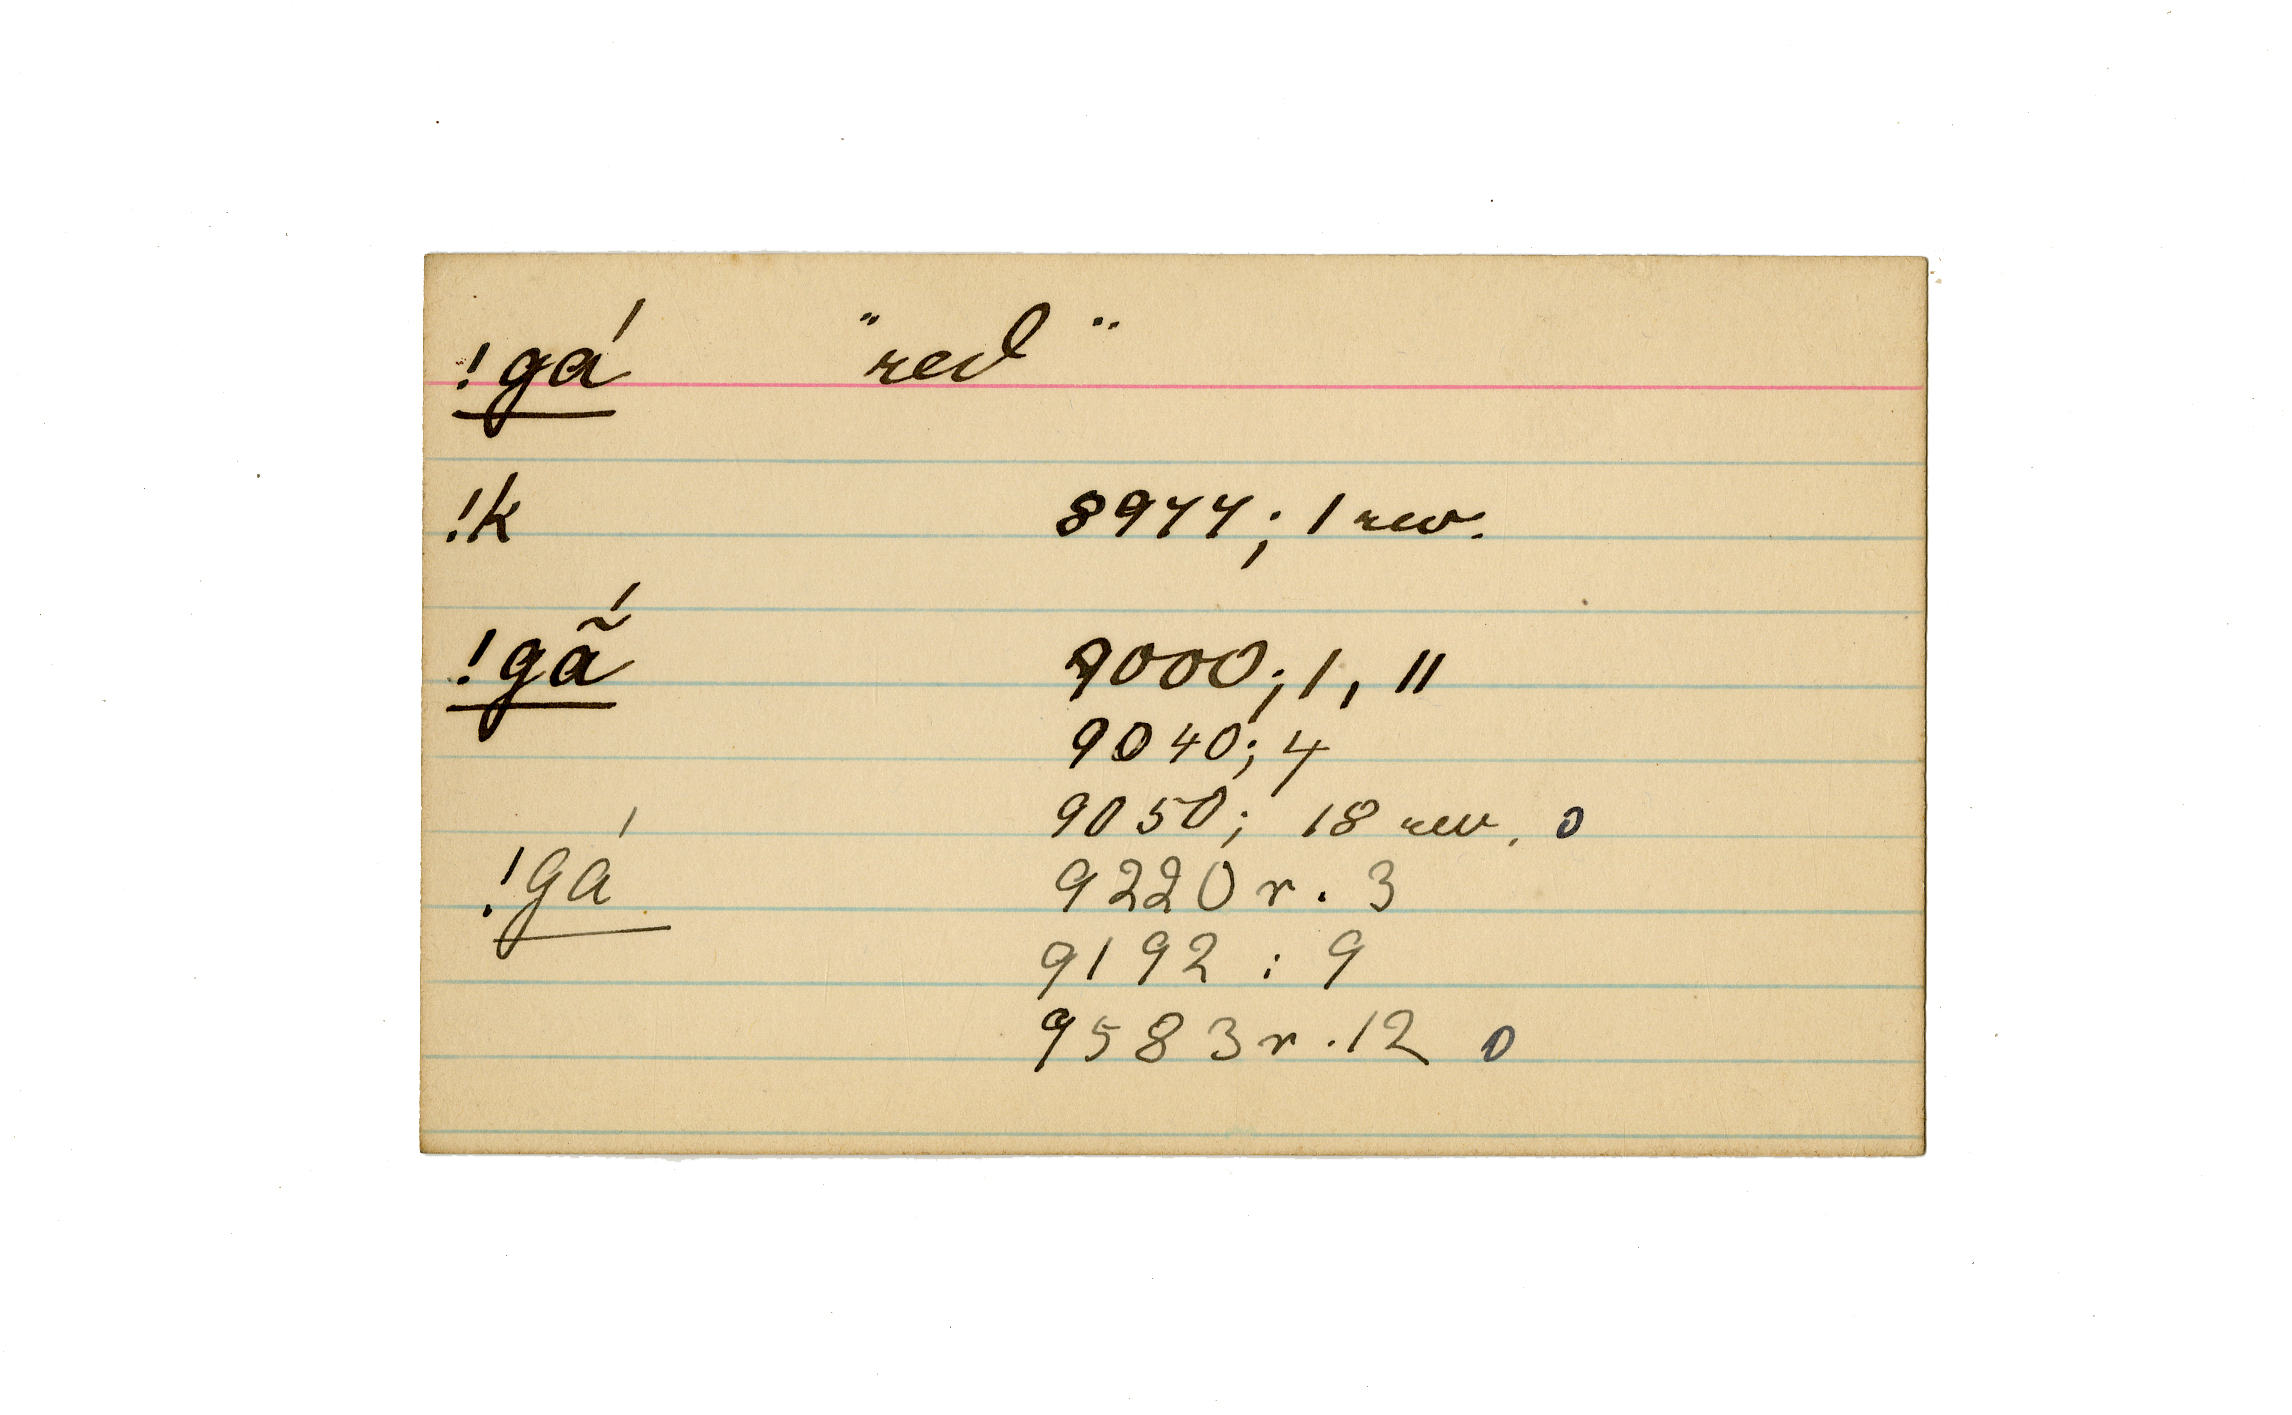 !gá "red"
!k 8977; 1 rev.
!gã́ 9000; 1, 11
9040; 4
9050; 18 rev. 0
!gá 9220 r. 3
9192 : 9
9583 r. 12 0